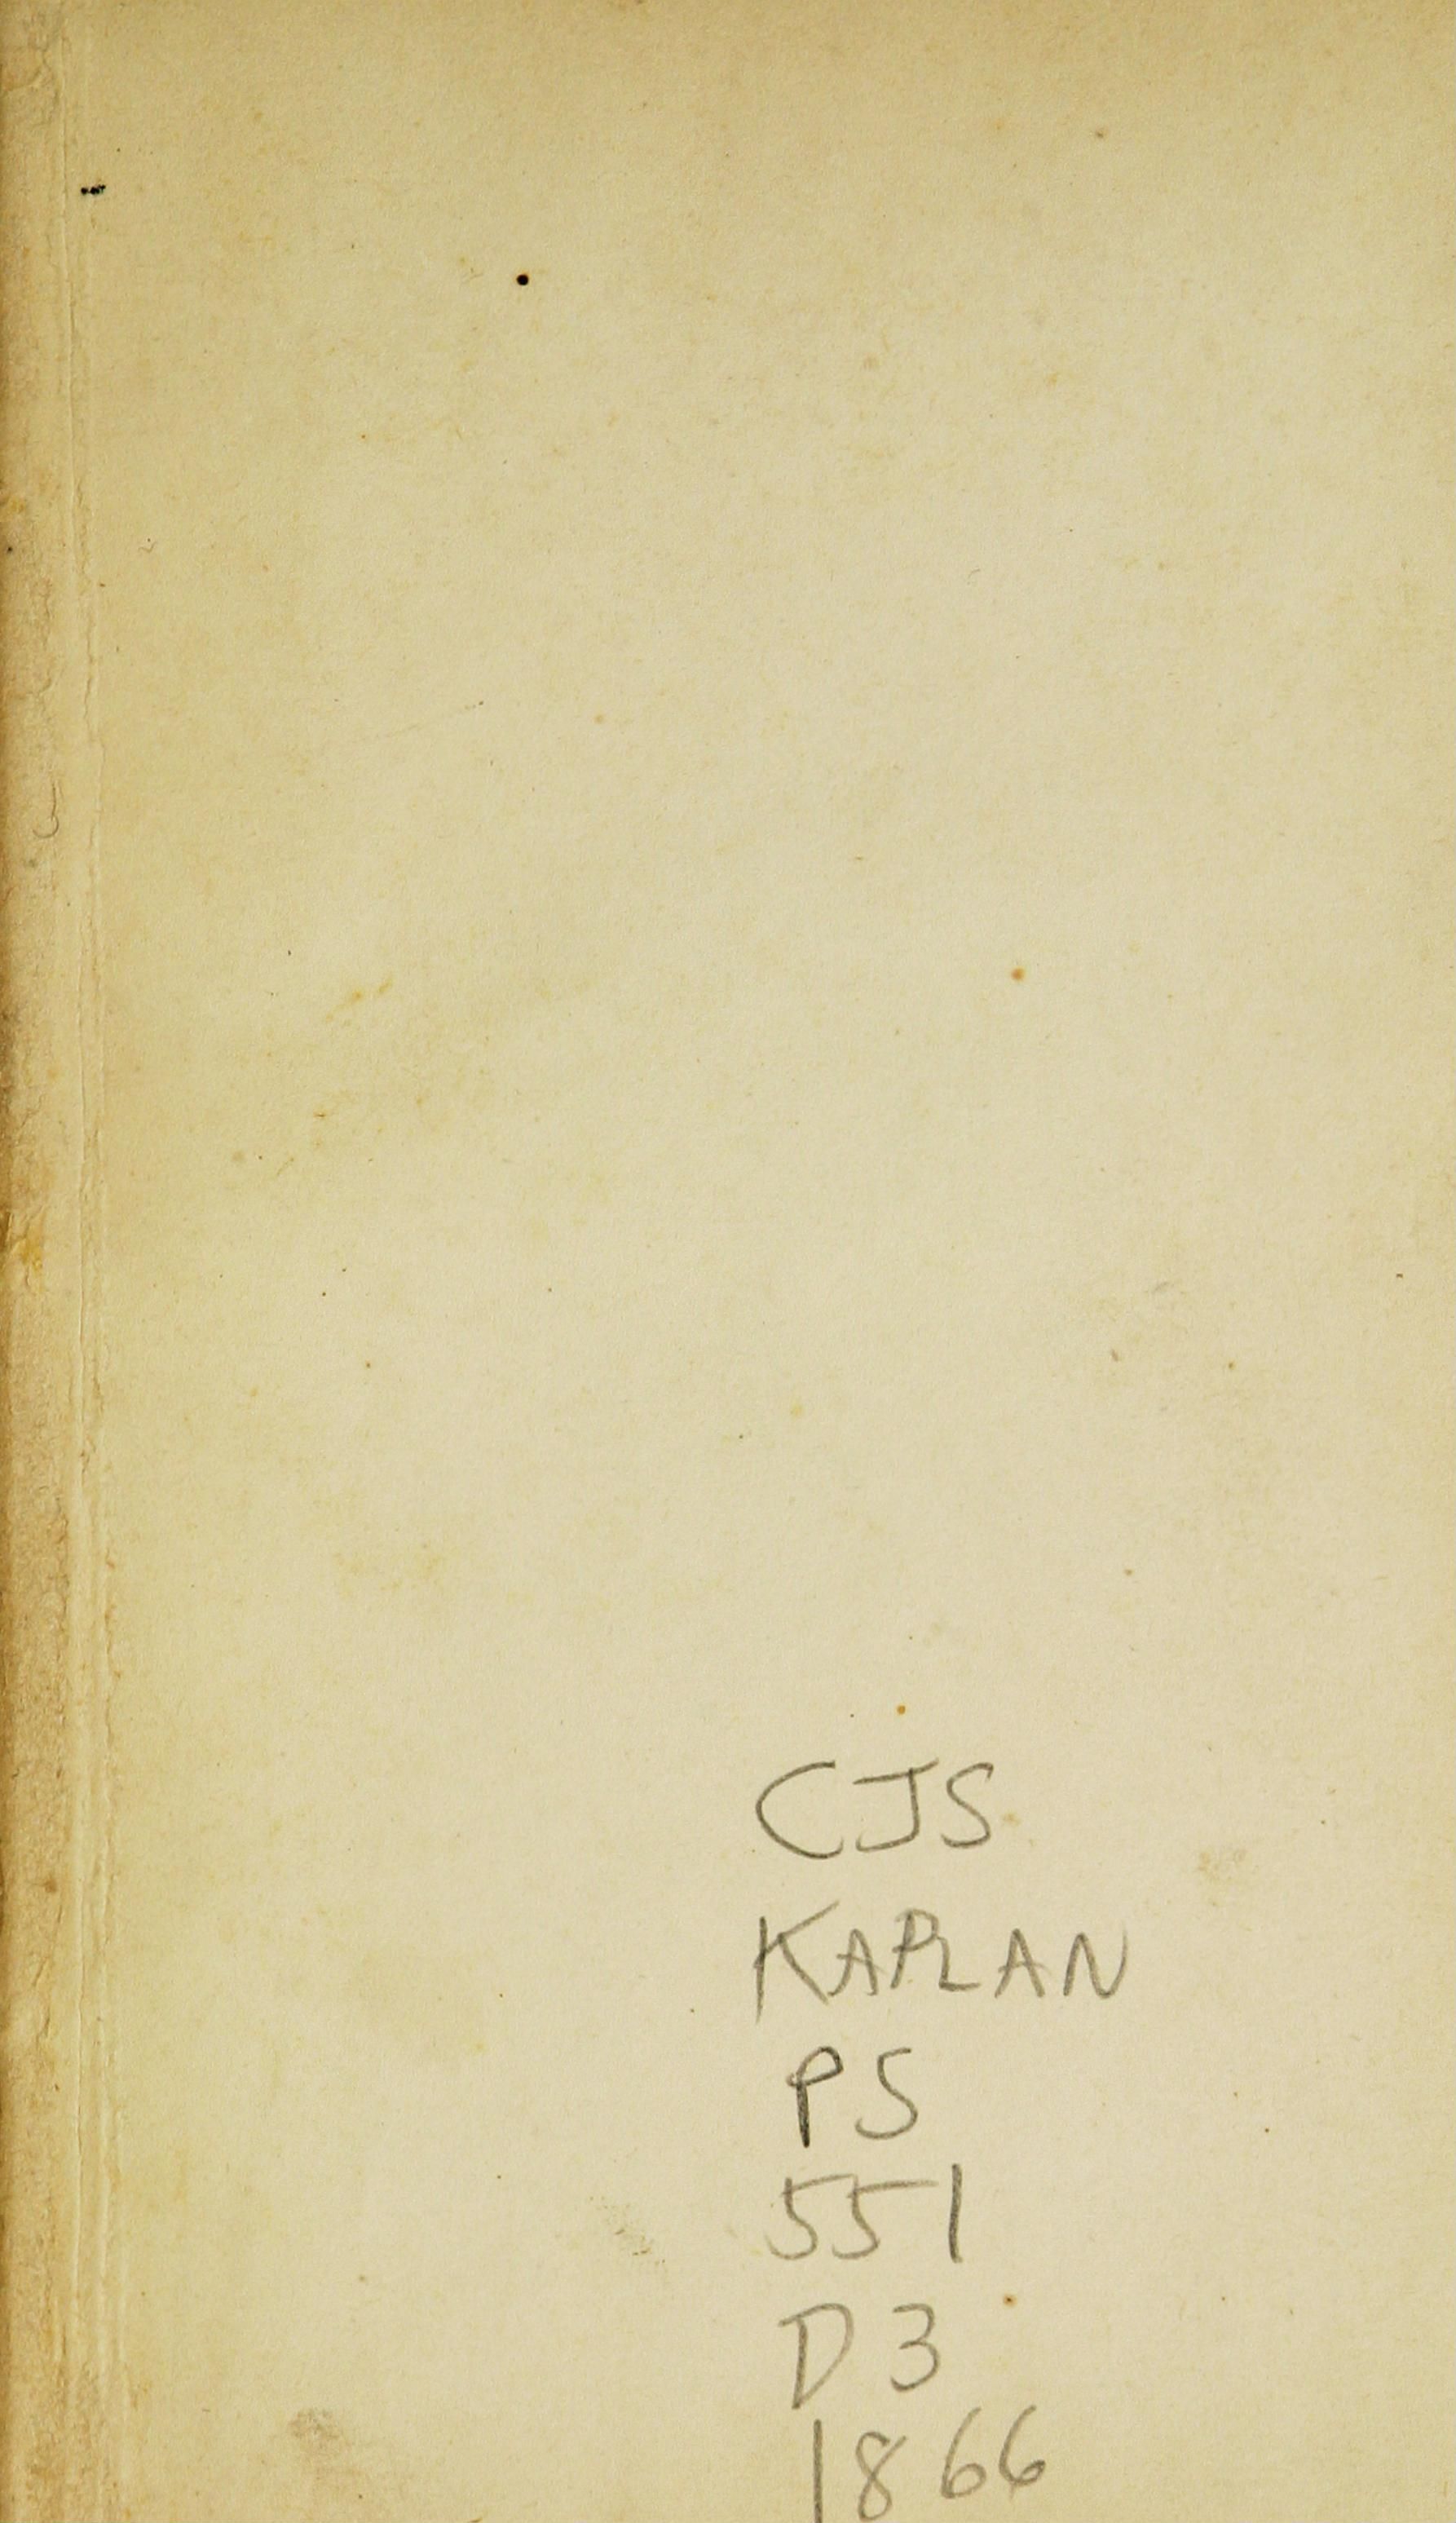 CJS
KAPLAN
PS
551
D3
1866